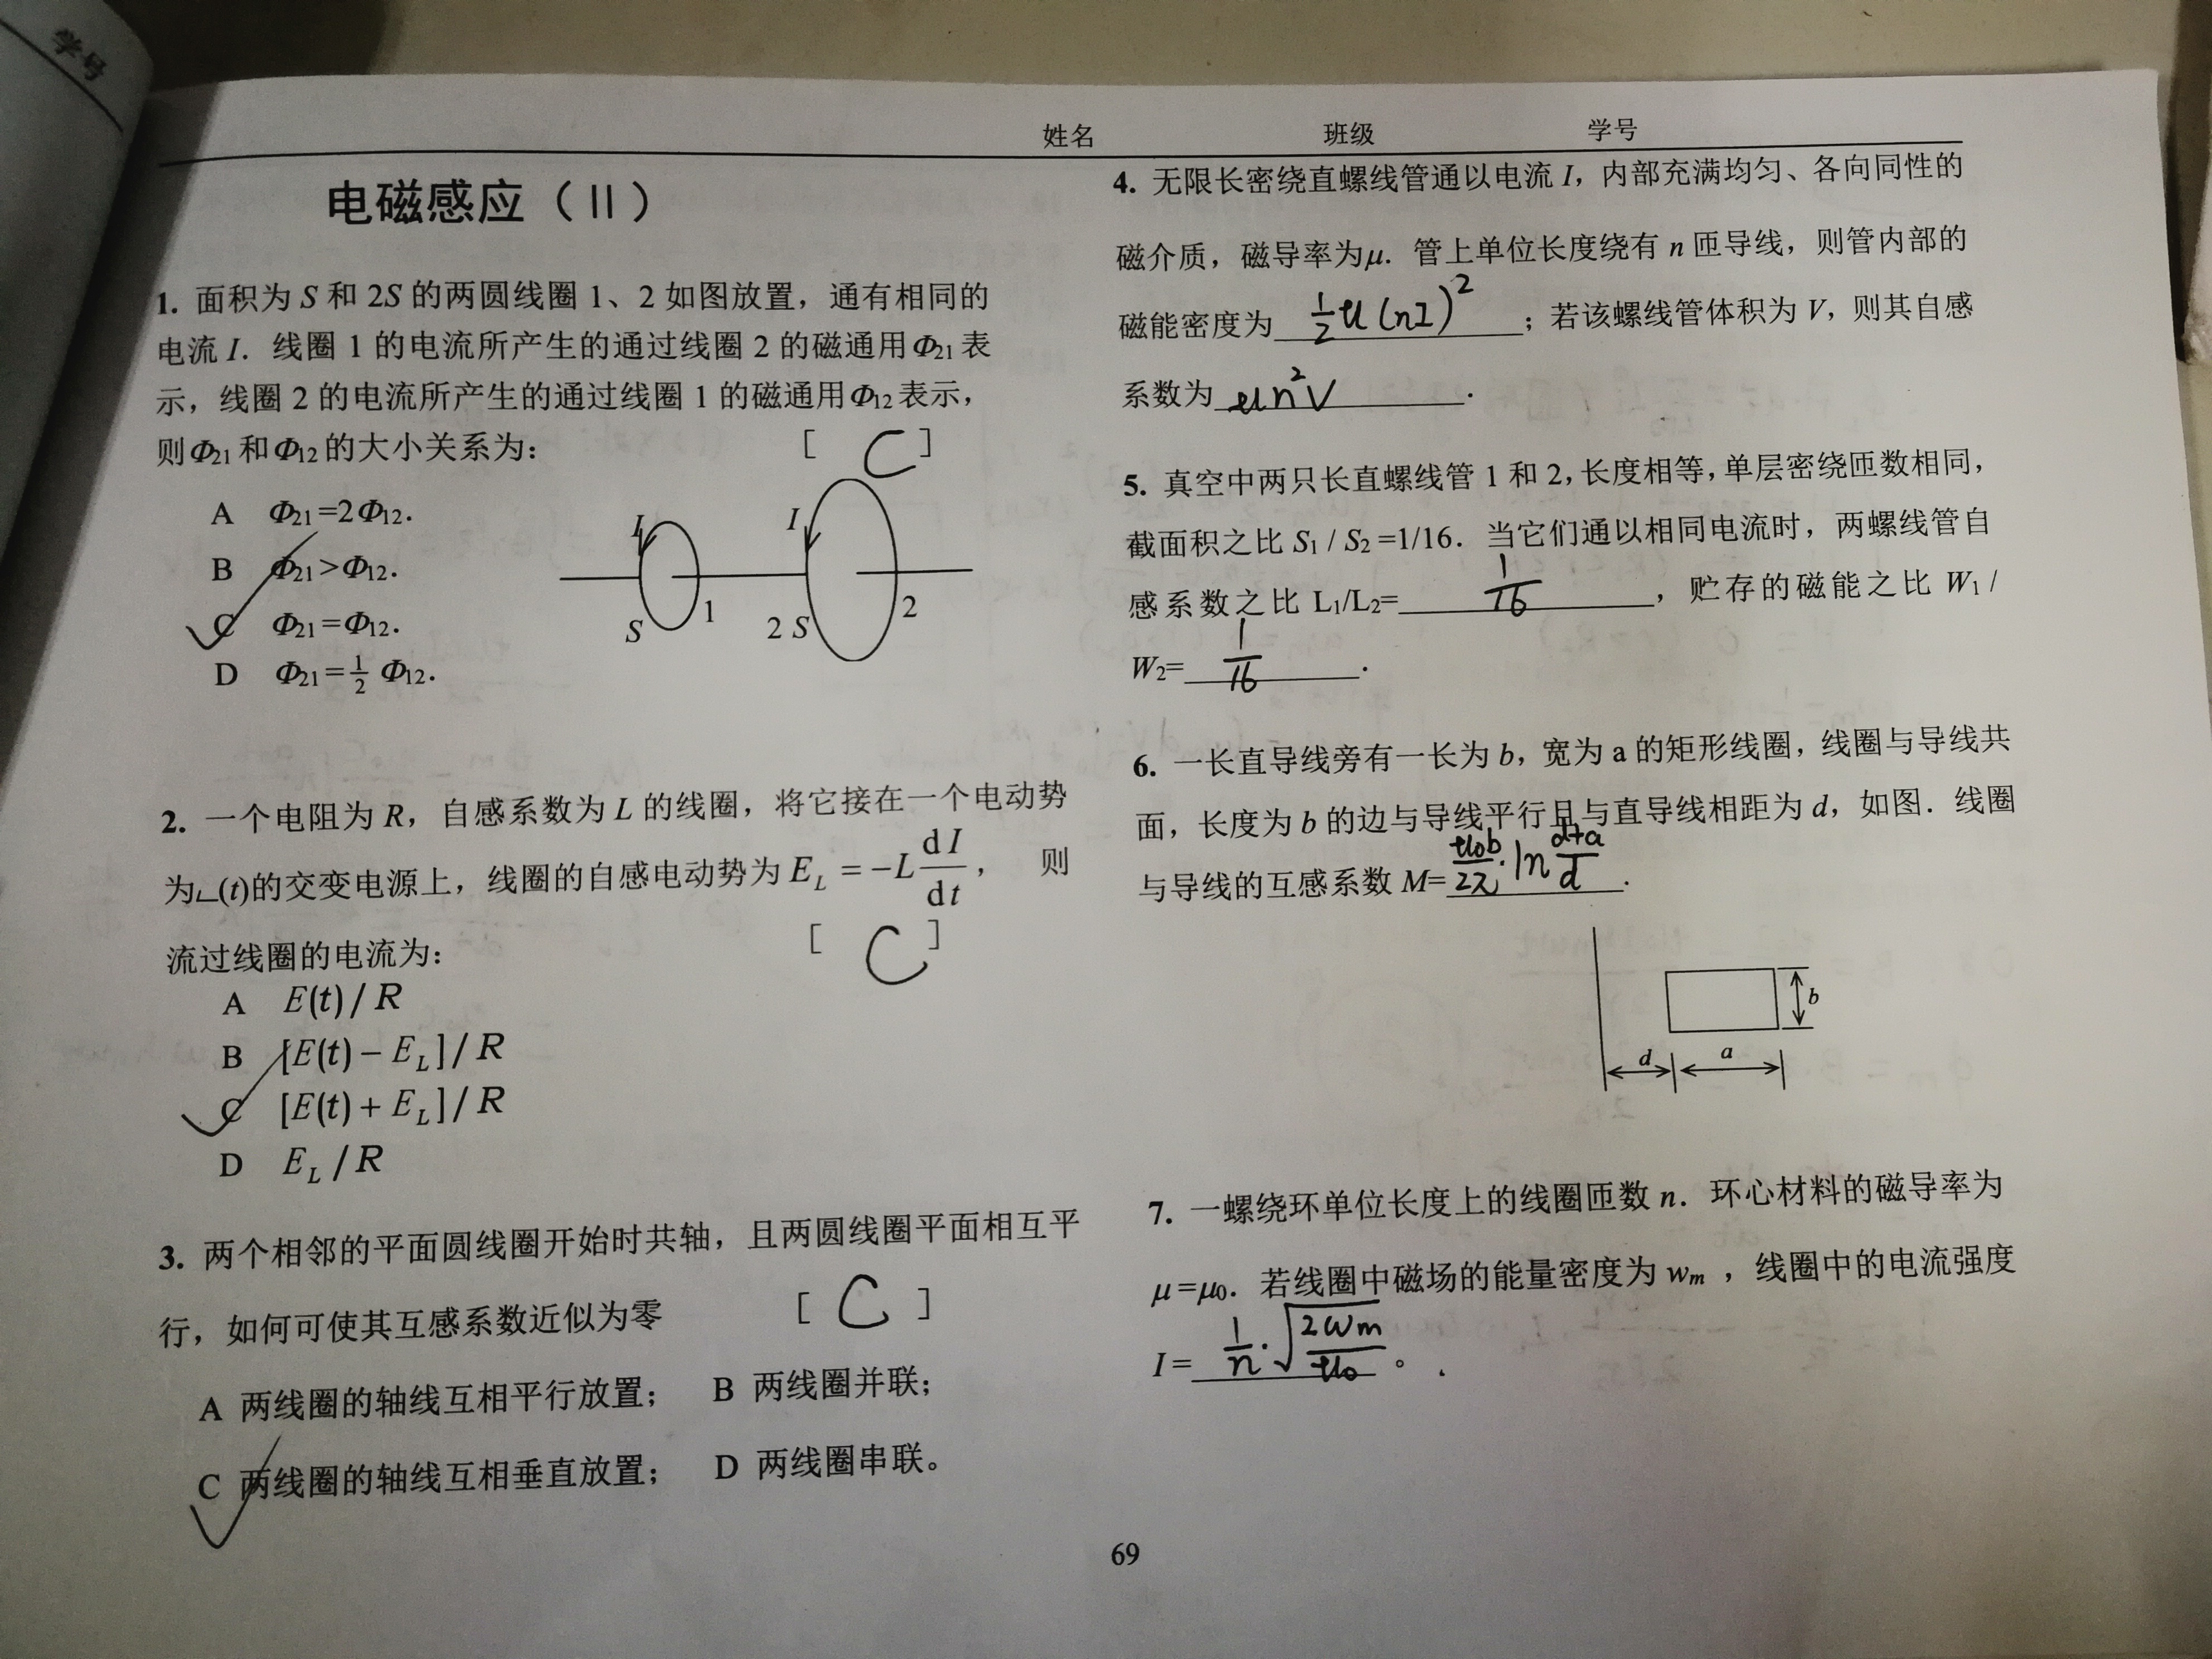 学号
姓名 班级 学号
电磁感应（II）
1. 面积为 S 和 2S 的两圆线圈 1、2 如图放置，通有相同的
电流 I. 线圈 1 的电流所产生的通过线圈 2 的磁通用Φ21表
示，线圈 2 的电流所产生的通过线圈 1 的磁通用Φ12表示，
则Φ21和Φ12的大小关系为：
[ C ]
A Φ21=2Φ12.
B Φ21>Φ12.
C Φ21=Φ12.
D Φ21=1/2 Φ12.
I I
S 1 2 S 2
2. 一个电阻为 R，自感系数为 L 的线圈，将它接在一个电动势
为∟(t)的交变电源上，线圈的自感电动势为 E_L = -L dI/dt， 则
流过线圈的电流为：
[ C ]
A E(t)/R
B [E(t)－E_L]/R
C [E(t)+E_L]/R
D E_L/R
3. 两个相邻的平面圆线圈开始时共轴，且两圆线圈平面相互平
行，如何可使其互感系数近似为零 [ C ]
A 两线圈的轴线互相平行放置； B 两线圈并联；
C 两线圈的轴线互相垂直放置； D 两线圈串联。
4. 无限长密绕直螺线管通以电流 I，内部充满均匀、各向同性的
磁介质，磁导率为μ. 管上单位长度绕有 n 匝导线，则管内部的
磁能密度为 1/2 μ(nI)² ；若该螺线管体积为 V，则其自感
系数为 μn²V .
5. 真空中两只长直螺线管 1 和 2，长度相等，单层密绕匝数相同，
截面积之比 S1 / S2 =1/16. 当它们通以相同电流时，两螺线管自
感系数之比 L1/L2= 1/16 ，贮存的磁能之比 W1 /
W2= 1/16 .
6. 一长直导线旁有一长为 b，宽为 a 的矩形线圈，线圈与导线共
面，长度为 b 的边与导线平行且与直导线相距为 d，如图. 线圈
与导线的互感系数 M= μ0b/2π · ln d+a/d .
b
d a
7. 一螺绕环单位长度上的线圈匝数 n. 环心材料的磁导率为
μ=μ0. 若线圈中磁场的能量密度为 wm ，线圈中的电流强度
I= 1/n · √(2wm/μ0) 。
69